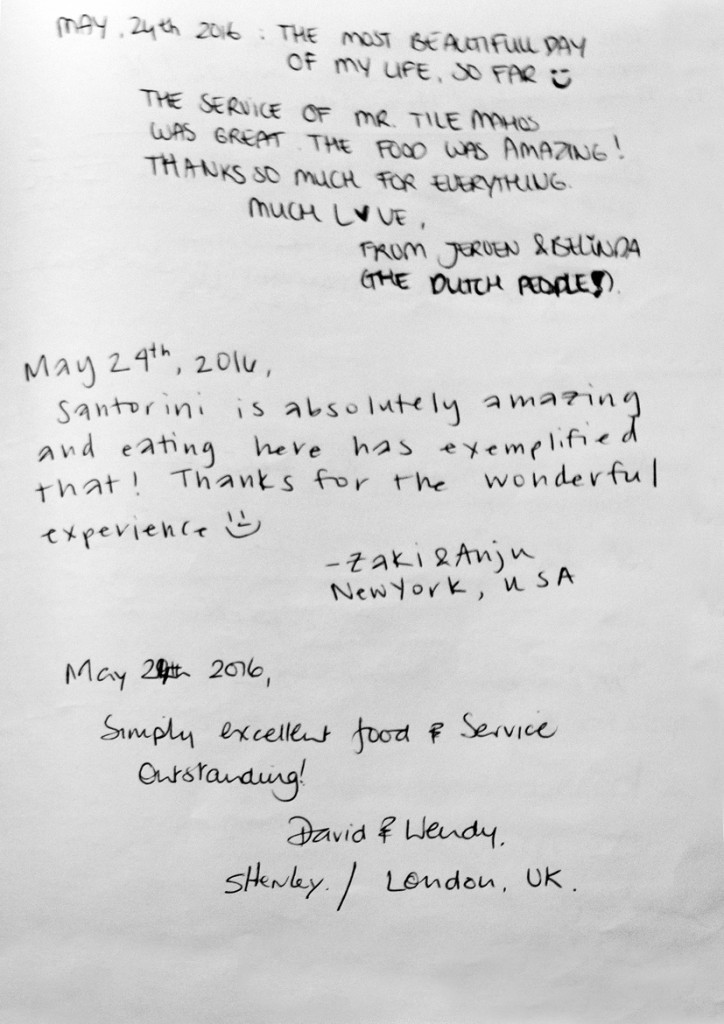 MAY, 24th 2016 : THE MOST BEAUTIFULL DAY
OF MY LIFE, SO FAR
THE SERVICE OF MR. TILEMAHOS
WAS GREAT. THE FOOD WAS AMAZING!
THANKS SO MUCH FOR EVERYTHING.
MUCH L♥VE,
FROM JEROEN & BELINDA
(THE DUTCH PEOPLE!).
May 24th, 2016,
Santorini is absolutely amazing
and eating here has exemplified
that! Thanks for the wonderful
experience
- Zaki & Anju
New York, USA
May 24th 2016,
Simply excellent food & Service
Outstanding!
David & Wendy.
SHenley. / London, UK.